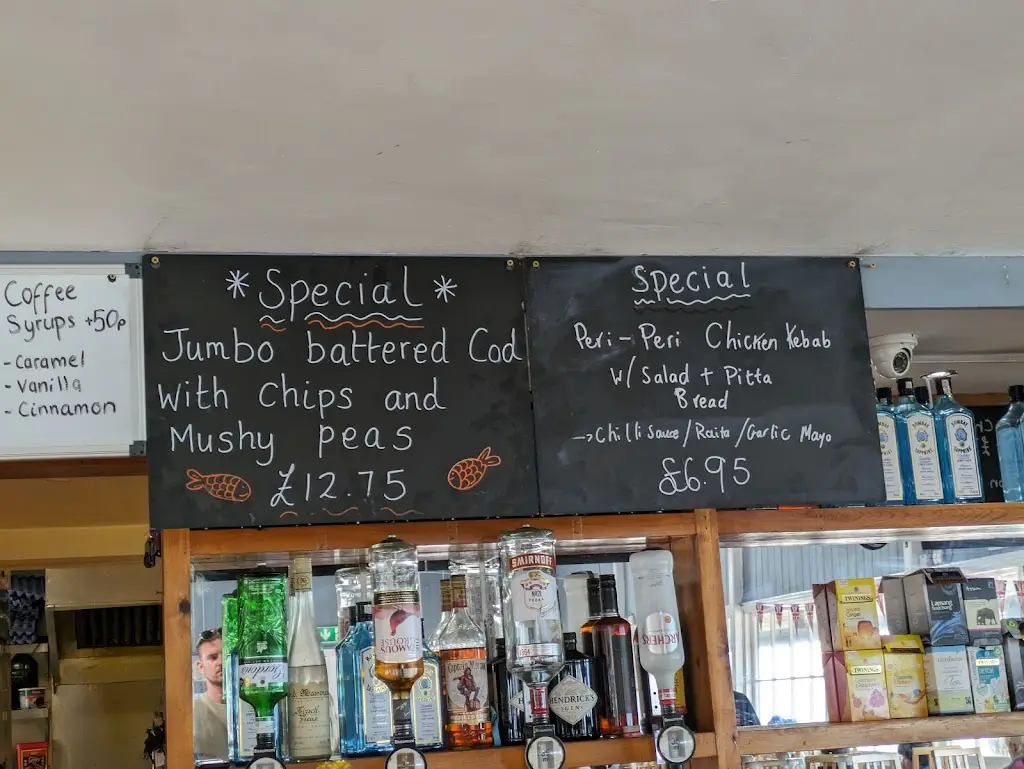 Coffee
Syrups +50p
- Caramel
- Vanilla
- Cinnamon
* Special *
Jumbo battered Cod
with Chips and
Mushy peas
£12.75
Special
Peri-Peri Chicken Kebab
W/ Salad + Pitta
Bread
→ Chilli Sauce / Raita / Garlic Mayo
£6.95
BOMBAY
SAPPHIRE
SMIRNOFF
1864
FAMOUS
GROUSE
Gordon's
Captain Morgan
HENDRICK'S
GIN
ARCHERS
TWININGS
TWININGS
Lapsang
Souchong